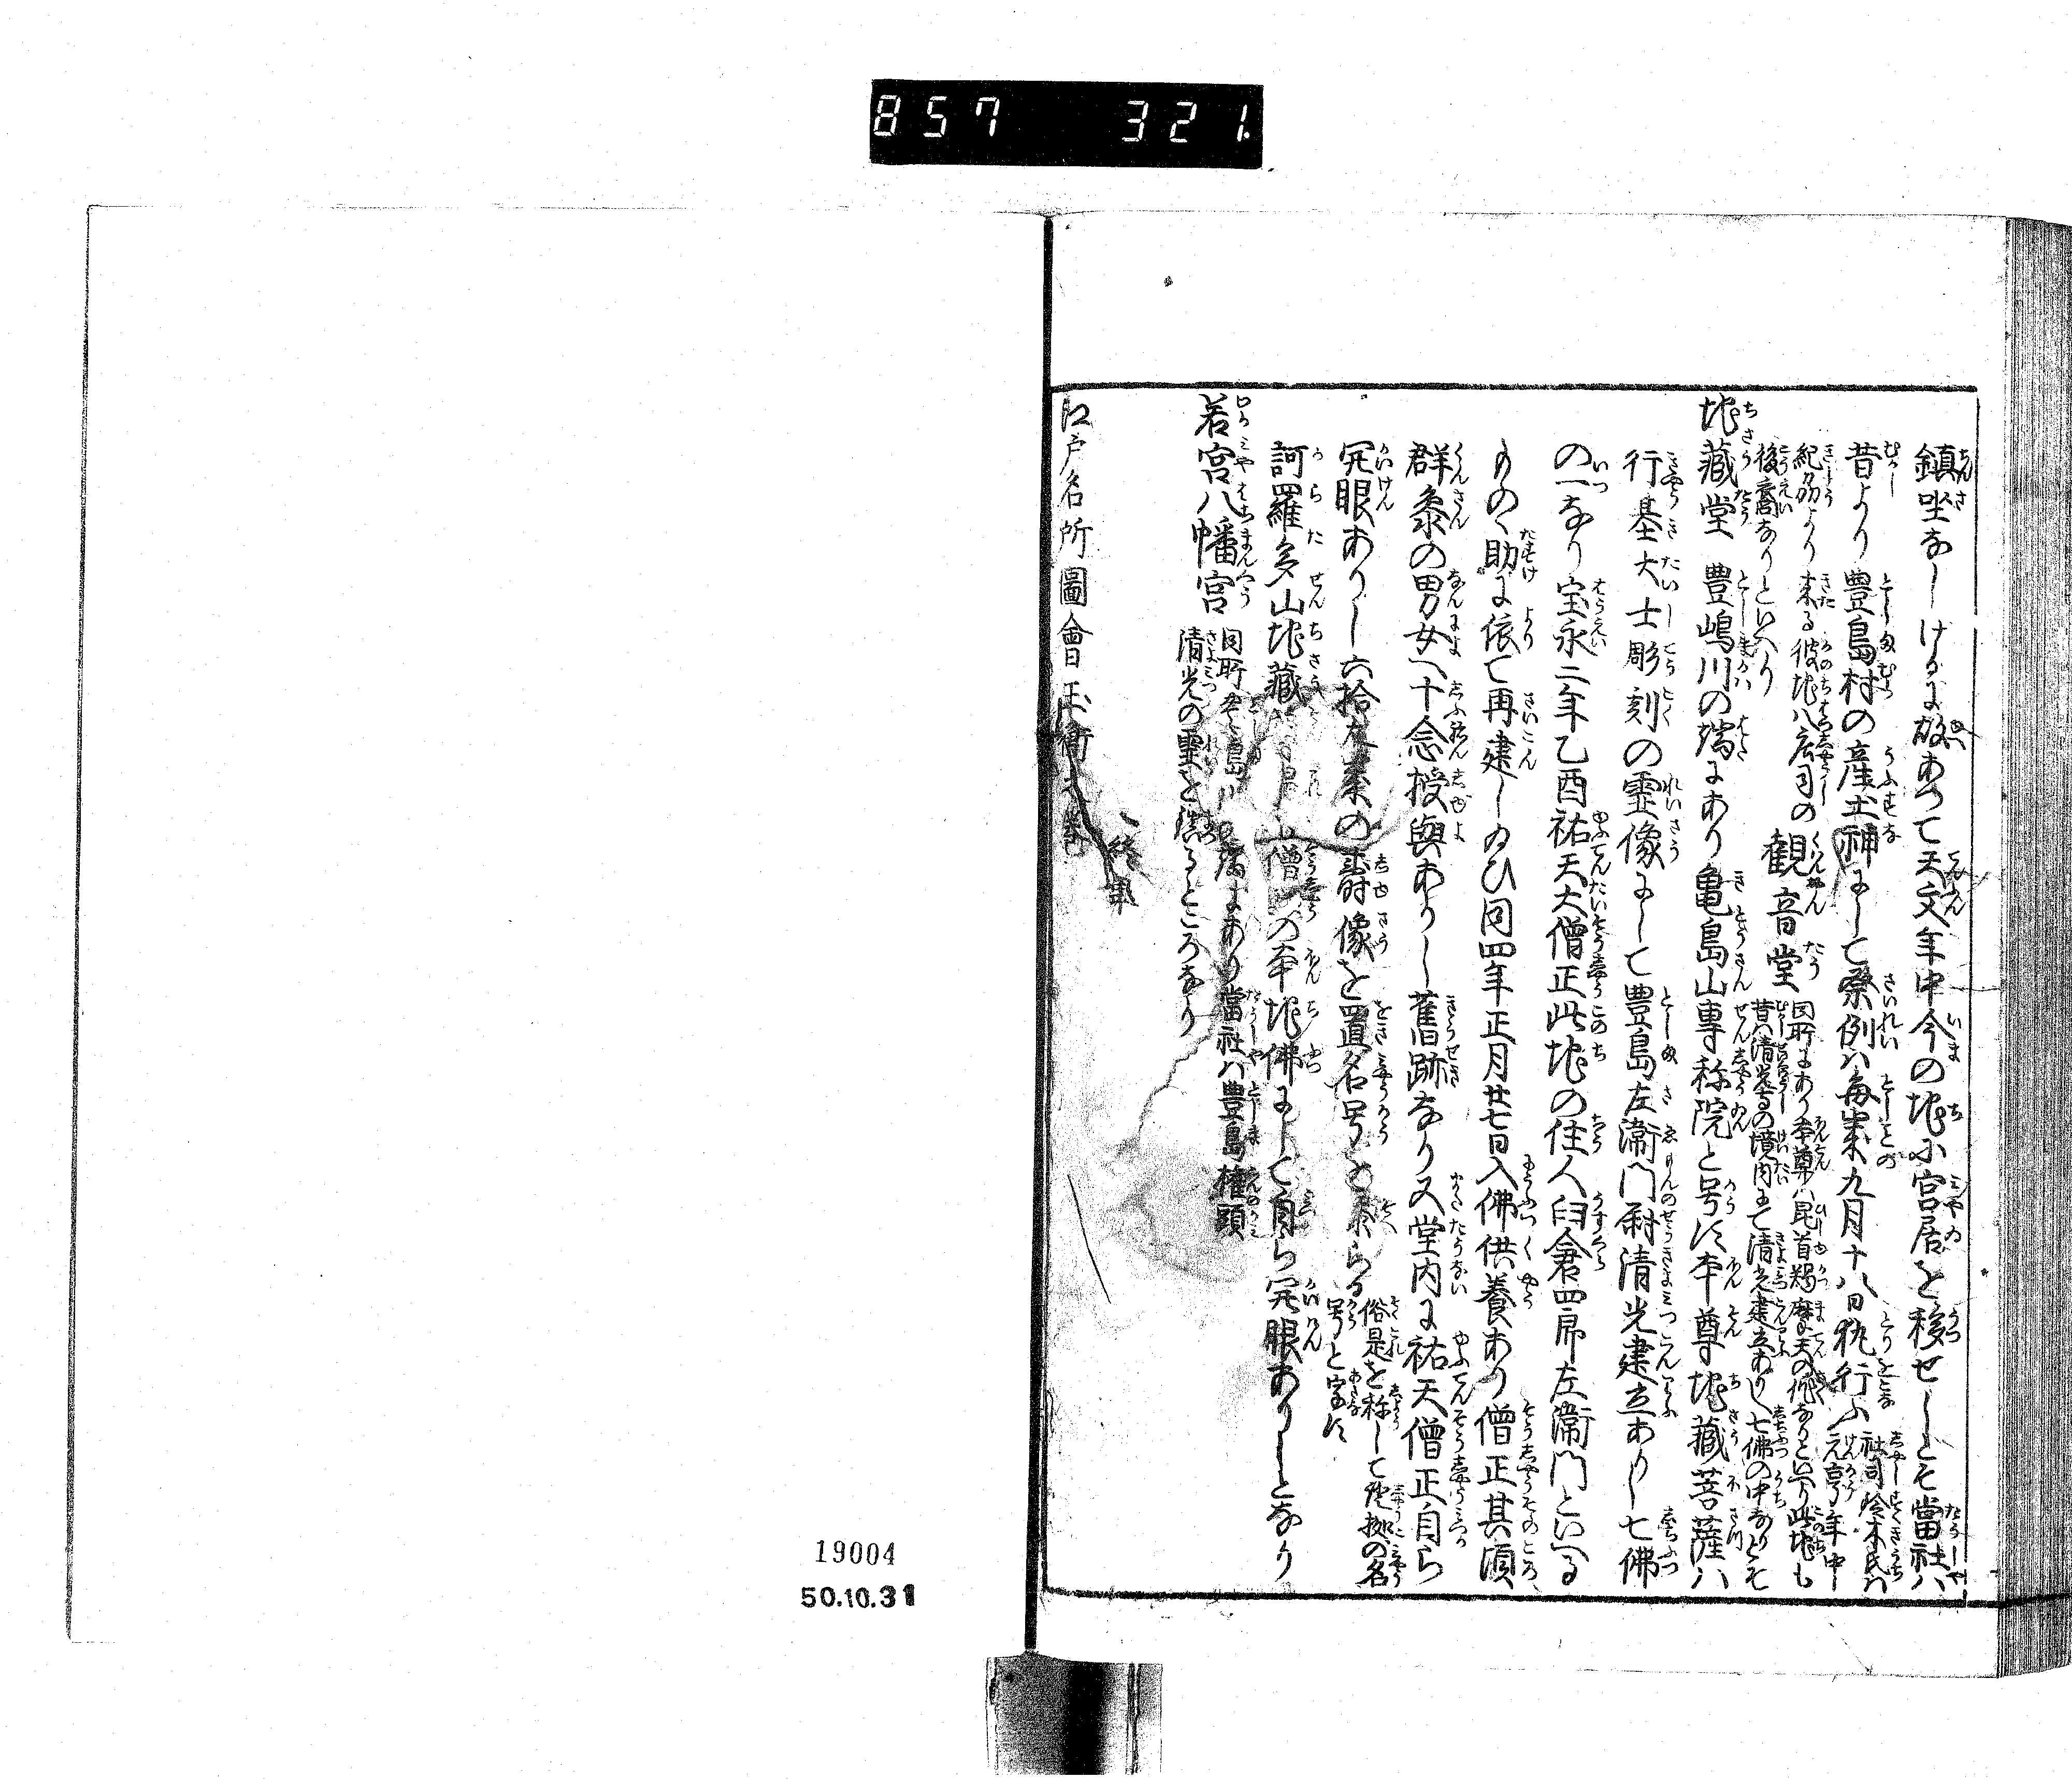 857 321
鎮坐なしけるに故あつて天文年中今の地に宮居を移せしとそ當社ハ
昔より豊島村の産土神にして祭例ハ毎歳九月十八日執行ふ
社司鈴木氏ハ元亨年中
紀州より来る彼地ハ庄司の
後裔なりといへり
観音堂
同所にあり本尊ハ毘首羯摩天の作なりといふ此地も
昔ハ清光寺の境内にて清光建立ありし七佛の中なりとそ
地藏堂 豊嶋川の端にあり亀島山専称院と号す本尊地藏菩薩ハ
行基大士彫刻の霊像にして豊島左衛門尉清光建立ありし七佛
の一なり宝永二年乙酉祐天大僧正此地の住人臼倉四郎左衛門といへる
ものゝ助に依て再建しゐひ同四年正月廿七日入佛供養あり僧正其頃
群参の男女へ十念授與ありし舊跡なり又堂内に祐天僧正自ら
開眼ありし六拾九歳の壽像を置名号を
俗是を称して證拠の名
号と字す
訶羅多山地藏
僧正の本地佛にして自ら開眼ありしとなり
若宮八幡宮
同所豊島川の端にあり當社ハ豊島権頭
清光の霊を鎮るところなり
江戸名所圖會玉衡之部
終
19004
50.10.31